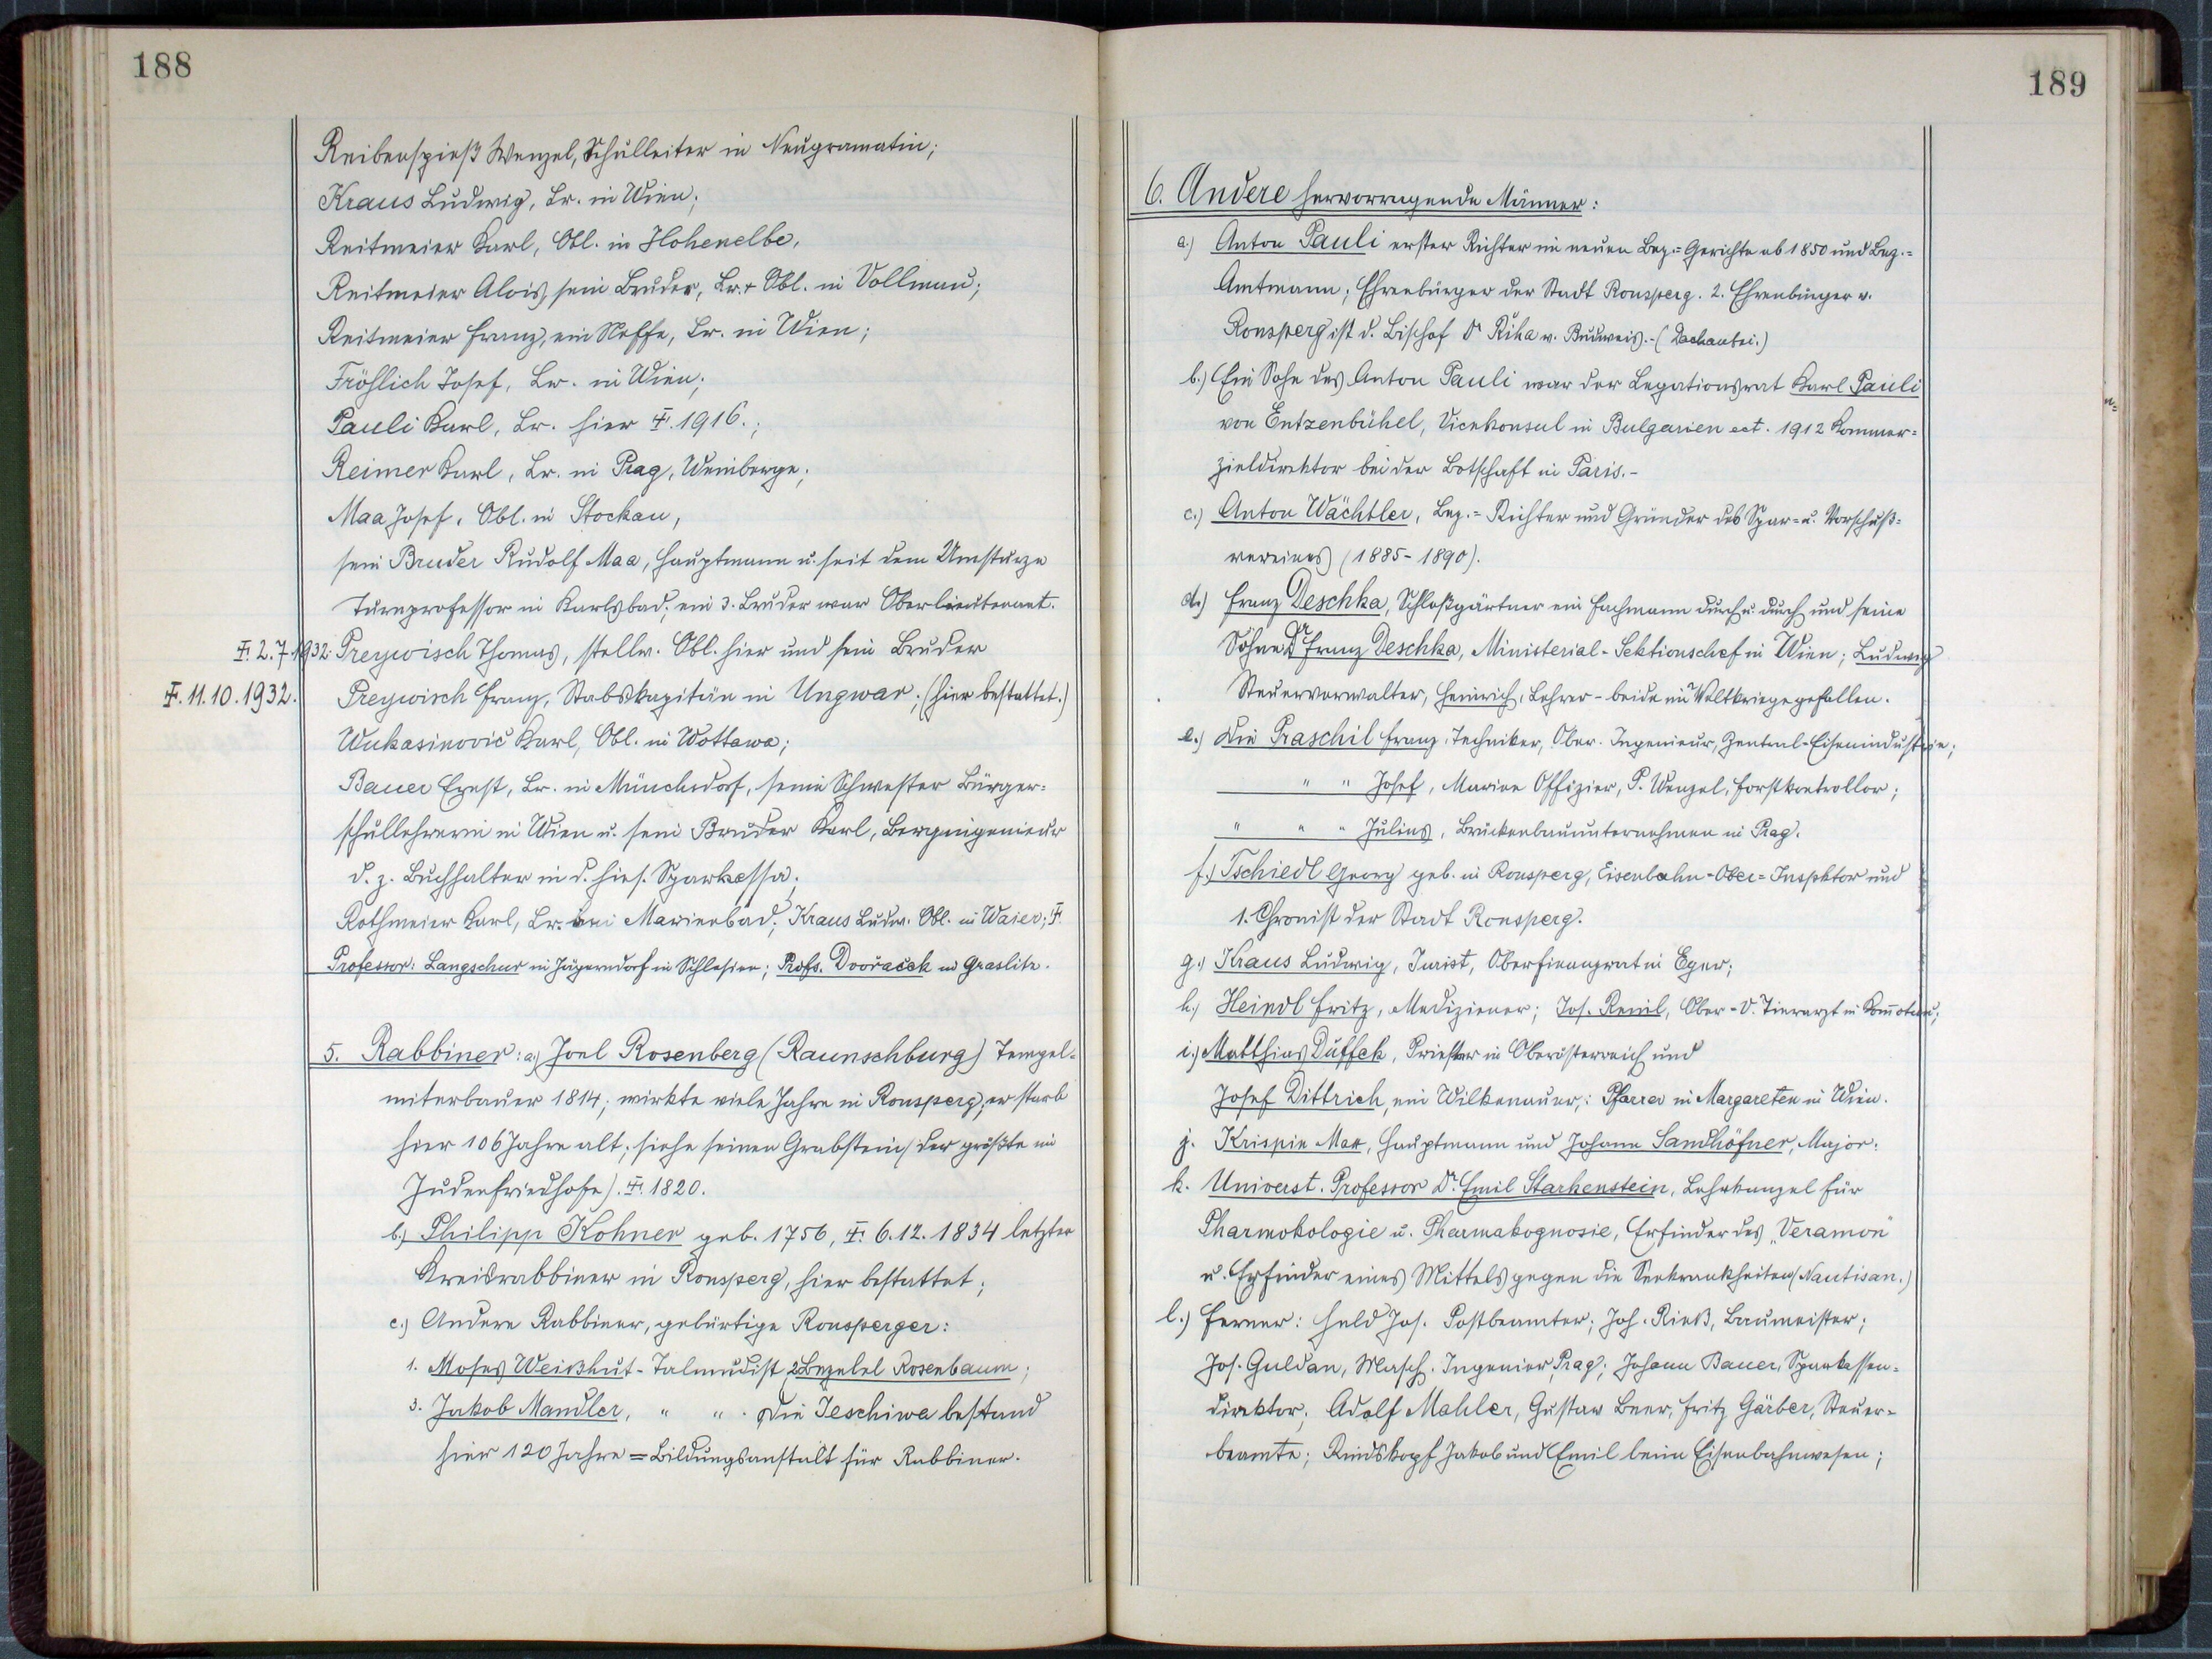 188
Reibenspieß Wenzel, Schulleiter in Neugramatin;
Kraus Ludwig, Lr. in Wien;
Reitmeier Karl, Obl. in Hohenelbe,
Reitmeier Alois, sein Bruder, Lr. + Obl. in Vollmau;
Reitmeier Franz, ein Neffe, Lr. in Wien;
Fröhlich Josef, Lr. in Wien;
Pauli Karl, Lr. hier †. 1916.;
Reimer Karl, Lr. in Prag, Weinberge;
Maa Josef, Obl. in Stockau,
sein Bruder Rudolf Maa, Hauptmann u. seit dem Umsturze
Turnprofessor in Karlsbad; ein 3. Bruder war Oberlieutenant.
†. 2. 7. 1932: Preywisch Thomas, stellv. Obl. hier und sein Bruder
†. 11. 10. 1932. Preywisch Franz, Stabskapitän in Ungwar; (hier bestattet.)
Wukasinović Karl, Obl. in Wottawa;
Bauer Ernst, Lr. in Münchsdorf, seine Schwester Bürger=
schullehrerin in Wien u. sein Bruder Karl, Bergingenieur
d. z. Buchhalter in d. hies. Sparkassa;
Rothmeier Karl, Lr. in Marienbad; Kraus Ludw. Obl. in Waier; †.
Professor: Langschur in Jägerndorf in Schlesien; Profs. Dvořaček in Graslitz.
5. Rabbiner: a.) Joel Rosenberg (Raunschburg) Tempel=
miterbauer 1814; wirkte viele Jahre in Ronsperg; er starb
hier 106 Jahre alt; siehe seinen Grabstein (der größte im
Judenfriedhofe). †. 1820.
b.) Philipp Kohner geb. 1756, †. 6. 12. 1834 letzter
Kreisrabbiner in Ronsperg, hier bestattet;
c.) Andere Rabbiner, gebürtige Ronsperger:
1. Moses Weißhut - Talmudist, 2 Bezalel Rosenbaum;
3. Jakob Mandler, " " . Die Jeschiwa bestand
hier 120 Jahre = Bildungsanstalt für Rabbiner.
189
6. Andere hervorragende Männer:
a.) Anton Pauli erster Richter im neuen Bez.= Gerichte ab 1850 und Bez.=
Amtmann; Ehrenbürger der Stadt Ronsperg. 2. Ehrenbürger v.
Ronsperg ist d. Bischof Dr Řiha v. Budweis.- (Dechantei.)
b.) Ein Sohn des Anton Pauli war der Legationsrat Karl Pauli
von Entzenbühel, Vicekonsul in Bulgarien ect. 1912 Kommer=
zieldirektor bei der Botschaft in Paris.-
c.) Anton Wächtler, Bez.= Richter und Gründer des Spar= u. Vorschuß=
vereines (1885-1890).
d.) Franz Deschka, Schloßgärtner ein Fachmann durch u. durch und seine
Söhne Dr Franz Deschka, Ministerial-Sektionschef in Wien; Ludwig
Steuerverwalter, Heinrich, Lehrer - beide im Weltkriege gefallen.
e.) Die Praschil Franz, Techniker, Ober. Ingenieur, Zentral-Eisenindustrie;
" " Josef, Marine Offizier, P. Wenzel, Forstkontrollor;
" " " Julius, Brückenbauunternehmen in Prag.
f.) Tschiedl Georg geb. in Ronsperg, Eisenbahn-Ober=Inspktor und
1. Chronist der Stadt Ronsperg.
g.) Kraus Ludwig, Jurist, Oberfinanzrat in Eger;
h.) Heindl Fritz, Mediziener; Jos. Renil, Ober-V. Tierarzt in Kom̅otau;
i.) Matthias Duffek, Priester in Oberösterreich und
Josef Dittrich, ein Wilkenauer,: Pfarrer in Margareten in Wien.
j. Krispin Max, Hauptmann und Johann Sandhöfner, Major.
k. Universt. Professor Dr. Emil Starkenstein, Lehrkanzel für
Pharmokologie u. Pharmakognosie, Erfinder des „Veramon"
u. Erfinder eines Mittels gegen die Seekrankheiten (Nautisan.)
l.) Ferner: Held Jos. Postbeamter; Joh. Rieß, Baumeister;
Jos. Guldan, Masch. Ingenier, Prag; Johann Bauer, Sparkassen=
direktor; Adolf Mahler, Gustav Beer, Fritz Gärber, Steuer=
beamte; Rindskopf Jakob und Emil beim Eisenbahnwesen;